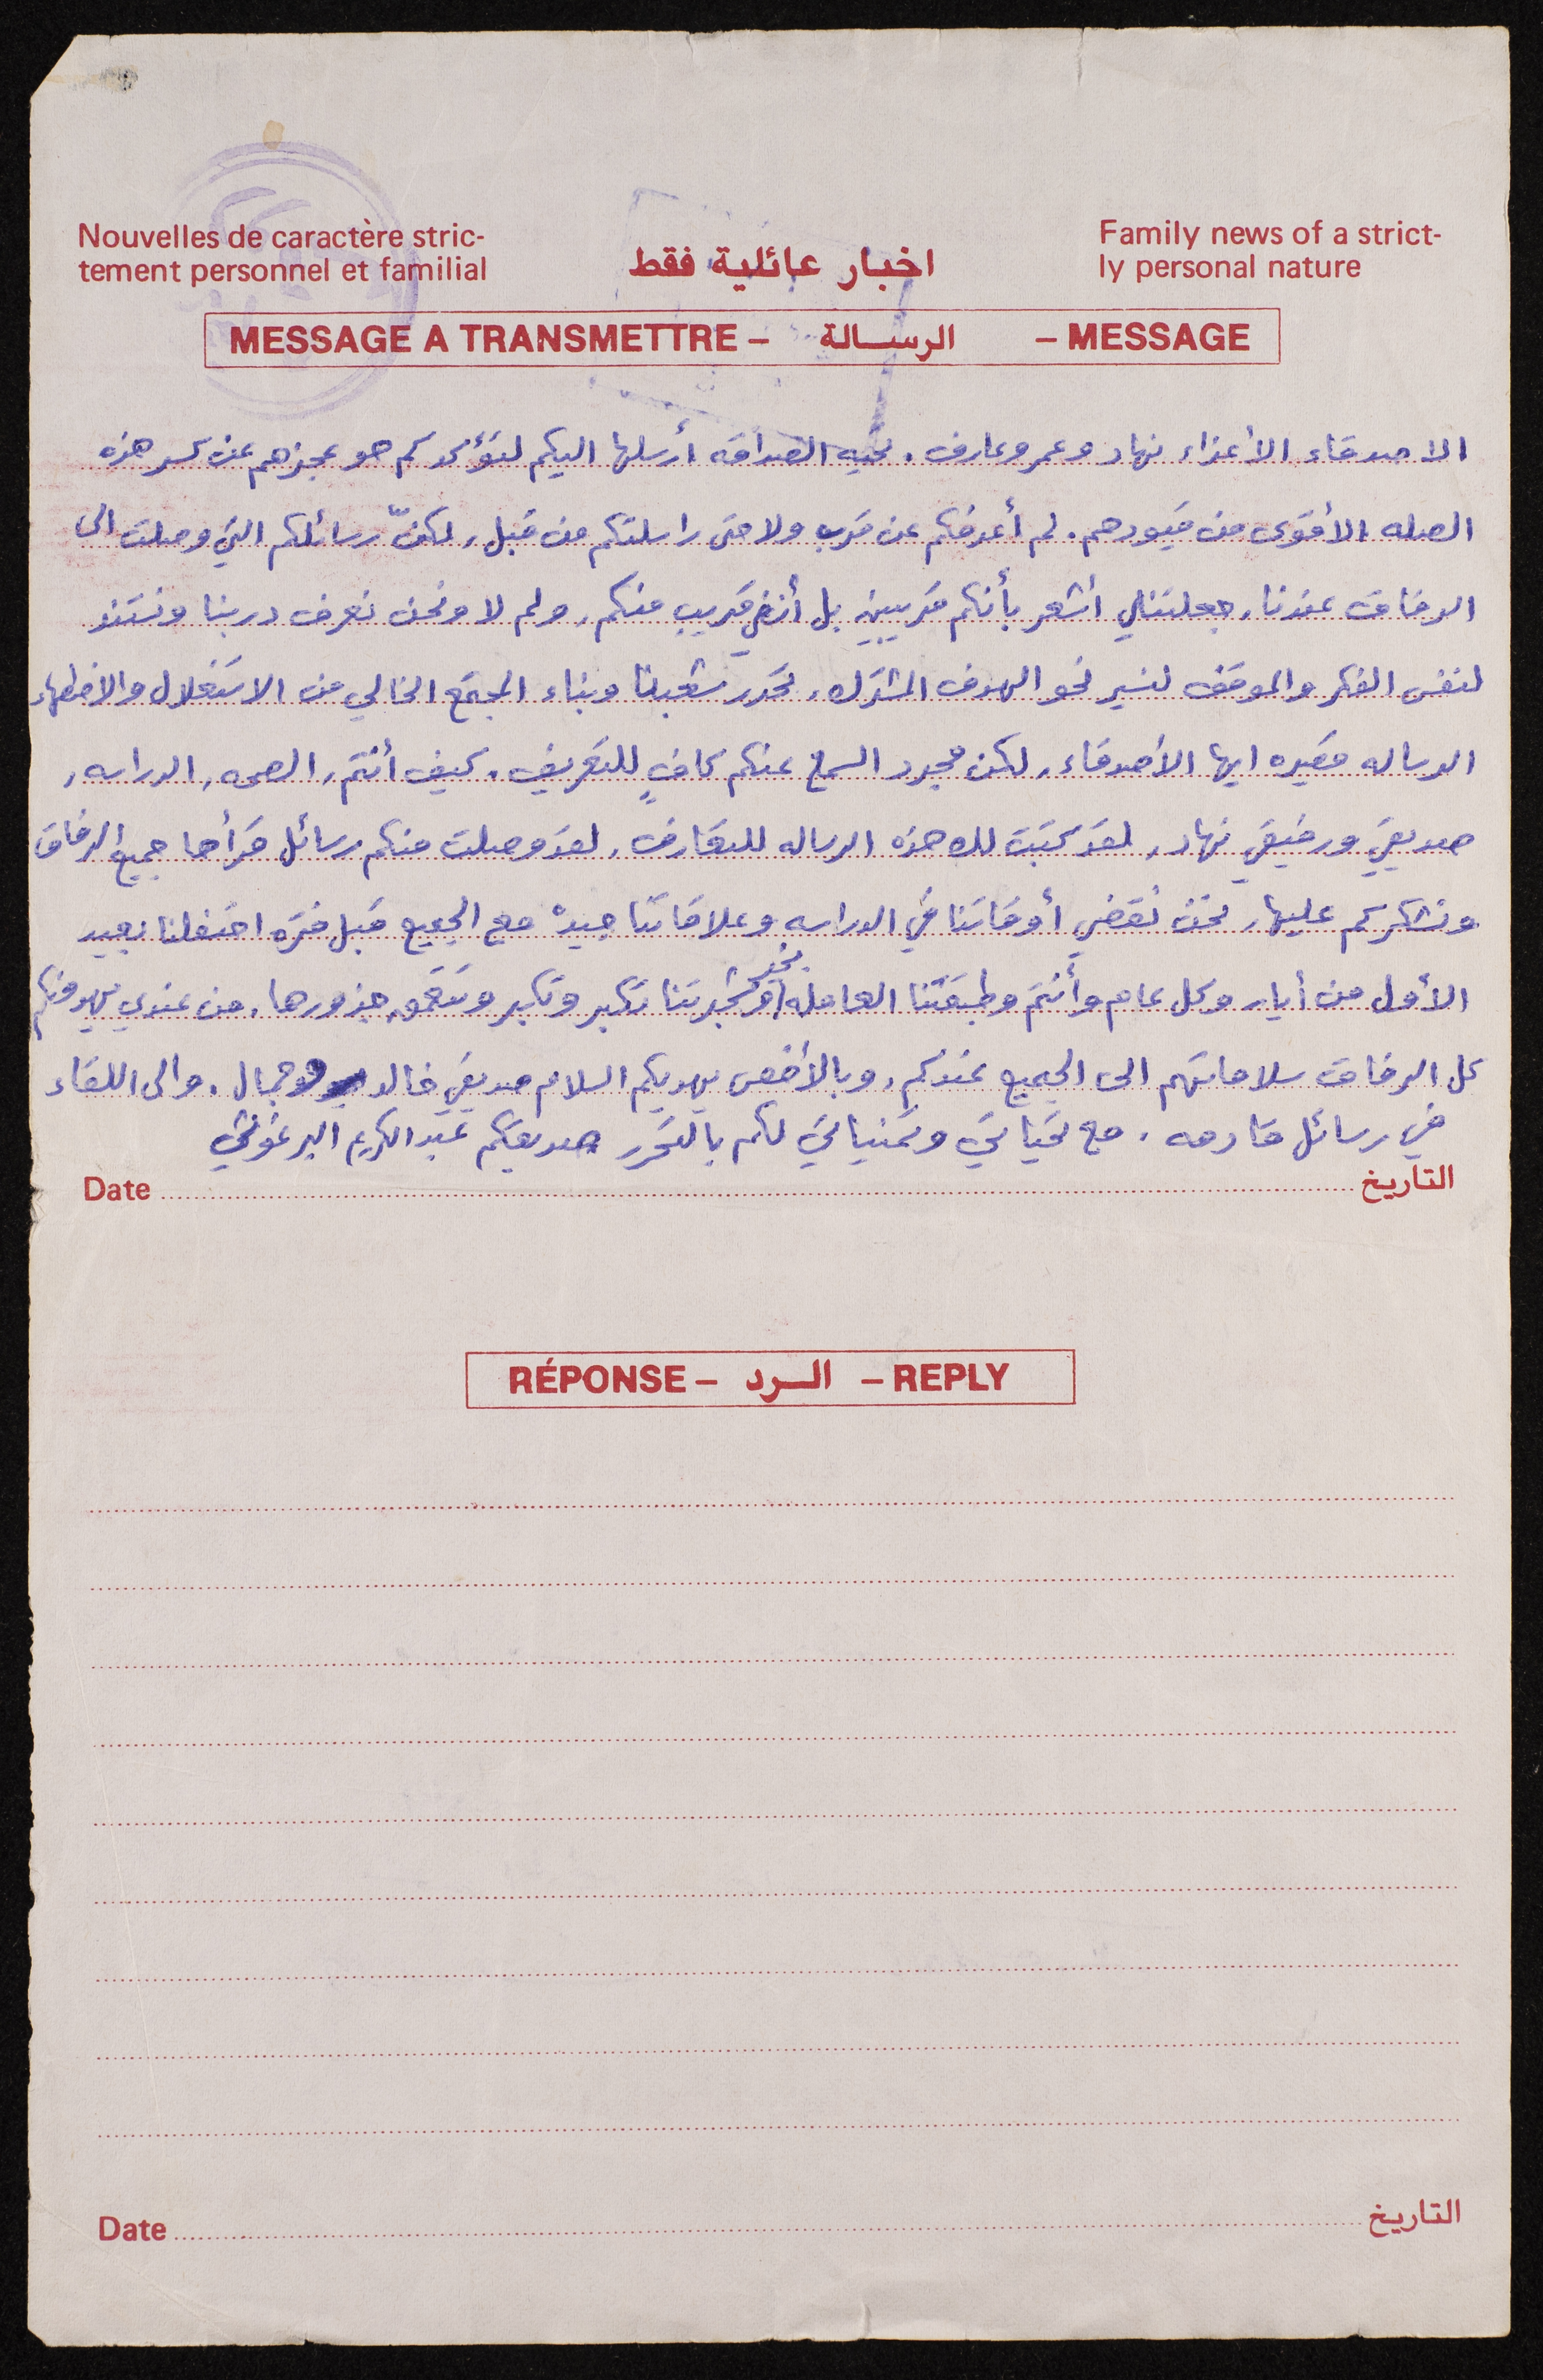 Nouvelles de caractère stric-
tement personnel et familial
اخبار عائلية فقط
Family news of a strict-
ly personal nature
MESSAGE A TRANSMETTRE – الرسالة – MESSAGE
الاصدقاء الأعزاء نهاد وعمر وعارف. تحيه الصداقه أرسلها اليكم لتؤكد كم هو عجزهم عن كسر هذه
الصله الأقوى من قيودهم. لم أعرفكم عن قرب ولا حتى راسلتكم من قبل, لكنّ رسائلكم التي وصلت الى
الرفاق عندنا, جعلتني أشعر بأنكم قريبين بل أنني قريب منكم, ولم لا ونحن نعرف دربنا ونستند
لنفس الفكر والموقف لنسير نحو الهدف المشترك, تحرر شعبنا وبناء المجتمع الخالي من الاستغلال والاضطهاد
الرساله قصيره ايها الأصدقاء, لكن مجرد السمع عنكم كافٍ للتعريف. كيف أنتم, الصحه, الدراسه,
صديقي ورفيقي نهاد, لقد كتبت لك هذه الرساله للتعارف, لقد وصلت منكم رسائل قرأها جميع الرفاق
ونشكركم عليها, نحن نقضي أوقاتنا في الدراسه وعلاقاتنا جيدة مع الجميع قبل فتره احتفلنا بعيد
الأول من أيار وكل عام وأنتم وطبقتنا العامله بخير وشجرتنا تكبر وتكبر وتتعمق جذورها, من عندي يهدونكم
كل الرفاق سلاماتهم الى الجميع عندكم, وبالأخص يهديكم السلام صديقي خالد وجمال. والى اللقاء
في رسائل قادمه, مع تحياتي وتمنياتي لكم بالتحرر صديقكم عبد الكريم البرغوثي
Date التاريخ
RÉPONSE – الرد – REPLY
Date التاريخ